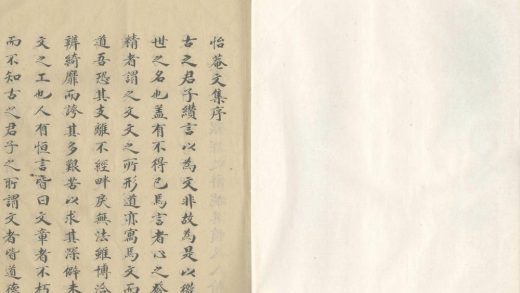 怡菴文集序
古之君子纘言以為文非故為是以徼
世之名也蓋有不得已焉言者心之發
精者謂之文文之所形道亦寓焉文而
道吾恐其支離不經畔戾無法雖博洽
辨綺靡而誇其多艱苦以求其深僻未
文之工也人有恒言皆曰文章者不朽
而不知古之君子之所謂文者皆道德